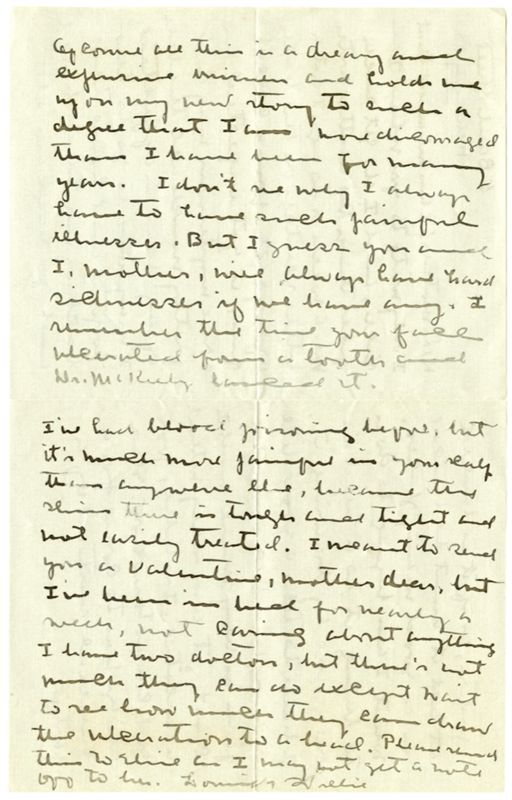 Of course all this is a dreary and
expensive business and holds me
up on my new story to such a
degree that I am more discouraged
than I have been for many
years. I don't see why I always
have to have such painful
illnesses. But I guess you and
I, mother, will always have hard
sicknesses if we have any. I
remember the time your face
ulcerated from a tooth and
Dr. McKeeby lanced it.
I've had blood poisoning before, but
it's much more painful in your scalp
than anywhere else, because the
skin there is tough and tight and
not easily treated. I meant to send
you a Valentine, mother dear, but
I've been in bed for nearly a
week, not caring about anything
I have two doctors, but there's not
much they can do except wait
to see how much they can draw
the ulceration to a head. Please send
this to Elsie as I may not get a note
off to her. Lovingly Willie